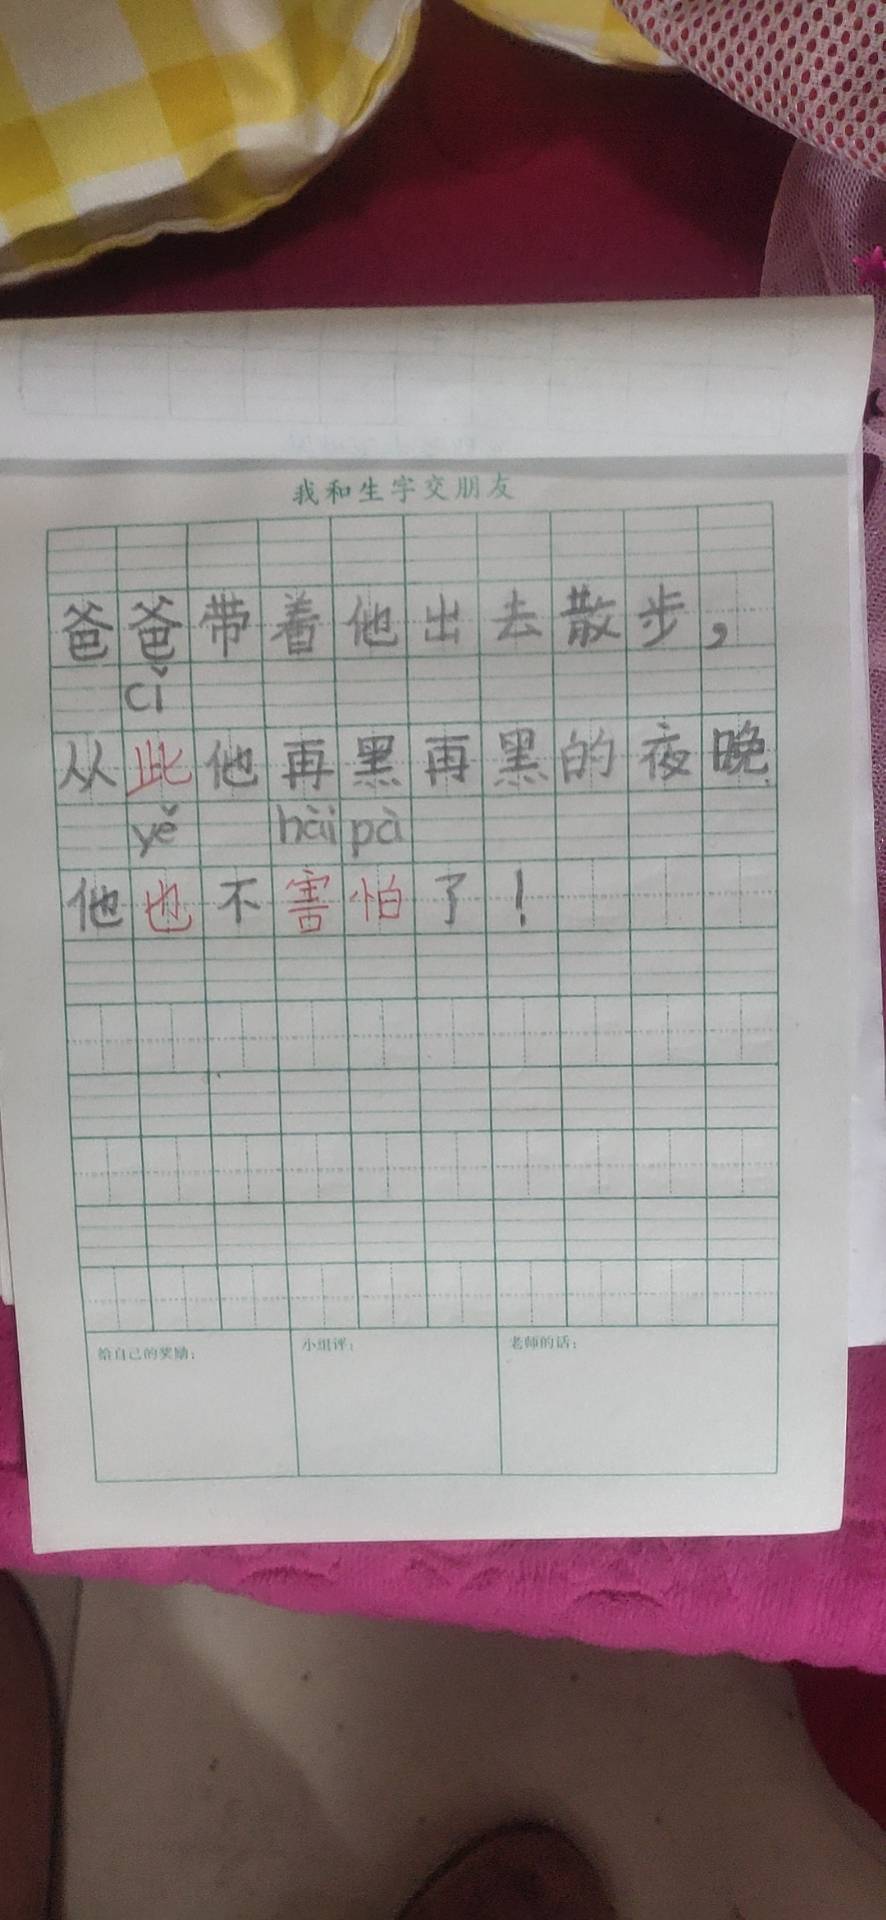 我和生字交朋友
爸爸带着他出去散步，
cǐ
从此他再黑再黑的夜晚
yě hài pà
他也不害怕了！
给自己的奖励：
小组评：
老师的话：